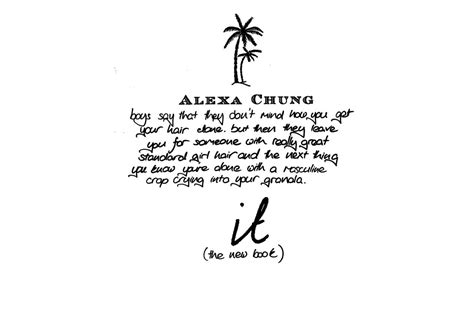 ALEXA CHUNG
boys say that they don't mind how you get
your hair done. but then they leave
you for someone with really great
standard girl hair and the next thing
you know you're alone with a masculine
crop crying into your granola.
it
(the new book)